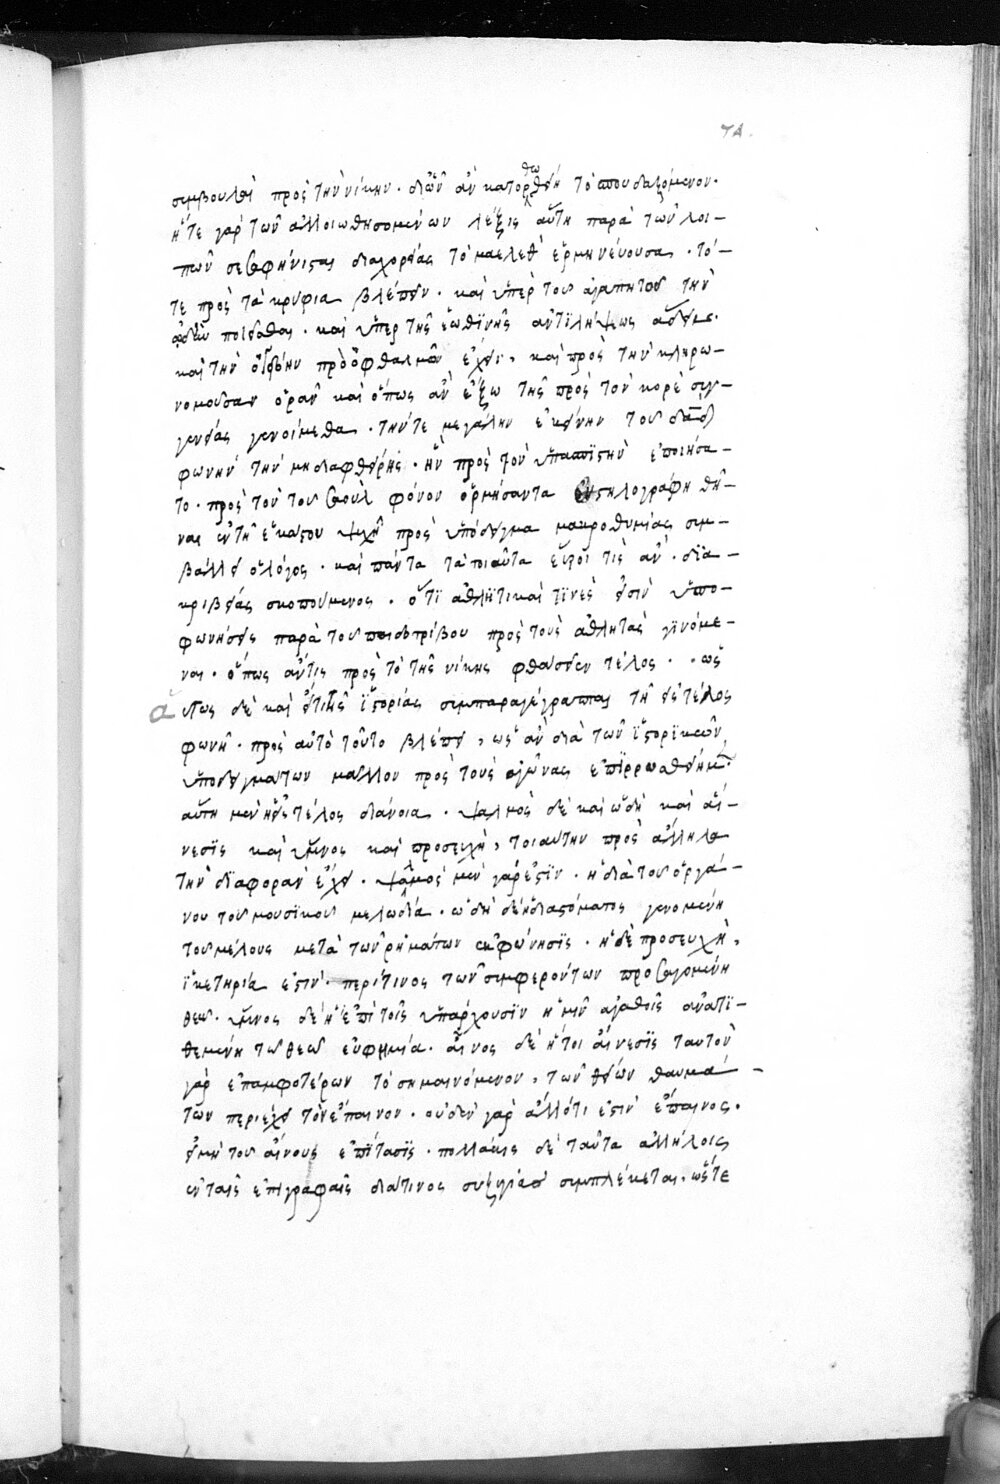 74.
συμβουλεύει πρὸς τὴν νίκην. διῶν ἂν κατορθωθείη τὸ σπουδαζόμενον.
ἥτε γὰρ τῶν ἀλλοιωθησομένων λέξις αὕτη παρὰ τῶν λοι-
πῶν
τε πρὸς τὰ κρύφια βλέπειν. καὶ ὑπὲρ τοῦ ἀγαπητοῦ τὴν
ὠδὴν ποιεῖσθαι. καὶ ὑπὲρ τῆς ἑωθινῆς ἀντιλήψεως
καὶ τὴν ὀγδόην πρὸ ὀφθαλμῶν ἔχειν, καὶ πρὸς τὴν κληρο-
νομοῦσαν ὁρᾶν καὶ ὅπως ἂν ἔξω τῆς πρὸς τὸν κορὲ συγ-
γενείας γενοίμεθα. τήν τε μεγάλην ἐκείνην τοῦ δαδ
φωνὴν τὴν μὴ διαφθείρῃς. ἣν πρὸς τὸν ὑπασπιστὴν ἐποιήσα-
το. πρὸς τὸν τοῦ σαοὺλ φόνον ὁρμήσαντα στηλογραφηθῆ-
ναι ἐν τῇ ἑκάστου ψυχῇ πρὸς ὑπόδειγμα μακροθυμίας συμ-
βάλλει ὁ λόγος. καὶ πάντα τὰ τοιαῦτα εὕροι τις ἂν. δι ἀ-
κριβείας σκοπούμενος. ὅτι ἀθλητικαί τινές εἰσιν ὑπο-
φωνήσεις παρὰ τοῦ παιδοτρίβου πρὸς τοὺς ἀθλητὰς γινόμε-
ναι. ὅπως ἄν τις πρὸς τὸ τῆς νίκης φθάσειεν τέλος. ὡς
αὕτως δὲ καὶ εἴ τι τῆς ἱστορίας συμπαραγέγραπται τῇ εἰς τέλος
φωνῇ. πρὸς αὐτὸ τοῦτο βλέπει, ὡς ἂν διὰ τῶν ἱστορικῶν
ὑποδειγμάτων μᾶλλον πρὸς τοὺς ἀγῶνας ἐπιρρωσθείημεν.
αὕτη μὲν ἡ εἰς τέλος διάνοια. ψαλμὸς δὲ καὶ ὠδὴ καὶ αἴ-
νεσις καὶ ὕμνος καὶ προσευχὴ, τοιαύτην πρὸς ἄλληλα
τὴν διαφορὰν ἔχει. ψαλμὸς μὲν γάρ ἐστιν. ἡ διὰ τοῦ ὀργά-
νου τοῦ μουσικοῦ μελωδία. ὠδὴ δὲ ἡ διαστόματος γενομένη
τοῦ μέλους μετὰ τῶν ῥημάτων ἐκφώνησις. ἡ δὲ προσευχὴ,
ἱκετηρία ἐστιν. περί τινος τῶν συμφερόντων προσαγομένη
θεῷ. ὕμνος δὲ ἡ ἐπὶ τοῖς ὑπάρχουσιν ἡμῖν ἀγαθοῖς ἀνατι-
θεμένη τῷ θεῷ εὐφημία. αἶνος δὲ ἤτοι αἴνεσις ταυτὸν
γὰρ ἐπαμφοτέρων τὸ σημαινόμενον, τῶν θείων θαυμά-
των περιέχει τὸν ἔπαινον. οὐδὲν γὰρ ἄλλό τι ἐστιν ἔπαινος.
εἰμὴ τοῦ αἴνους ἐπίτασις. πολλάκις δὲ ταῦτα ἀλλήλοις
ἐν ταῖς ἐπιγραφαῖς διάτινος συζυγίας συμπλέκεται. ὥστε